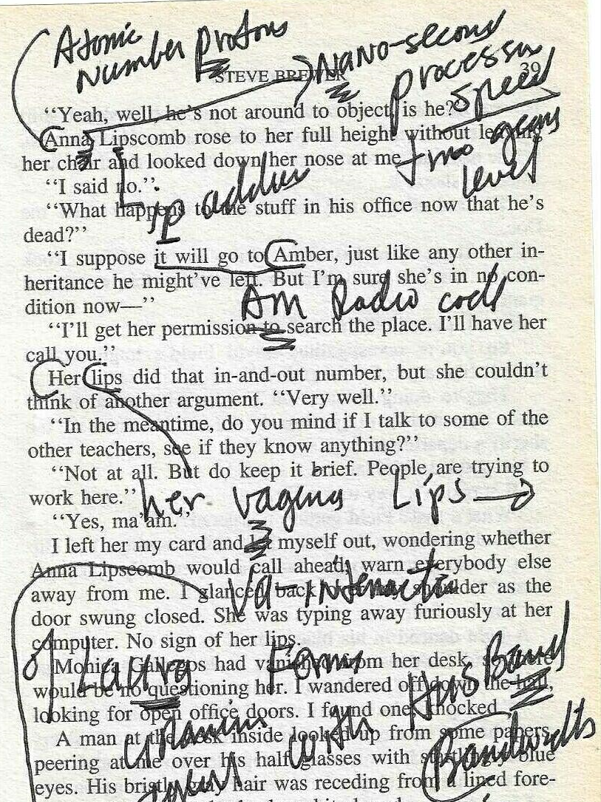 Atomic
Number Protons
Nano-second
processor
speed
STEVE BREWER
39
"Yeah, well, he's not around to object, is he?"
Anna Lipscomb rose to her full height without leaving
her chair and looked down her nose at me.
level
"I said no."
Ip address
"What happens to the stuff in his office now that he's
dead?"
"I suppose it will go to Amber, just like any other in-
heritance he might've left. But I'm sure she's in no con-
dition now—"
AM Radio code
"I'll get her permission to search the place. I'll have her
call you."
Her lips did that in-and-out number, but she couldn't
think of another argument. "Very well."
"In the meantime, do you mind if I talk to some of the
other teachers, see if they know anything?"
"Not at all. But do keep it brief. People are trying to
work here."
her vagina Lips
"Yes, ma'am."
I left her my card and let myself out, wondering whether
Anna Lipscomb would call ahead, warn everybody else
away from me. I glanced back over my shoulder as the
door swung closed. She was typing away furiously at her
computer. No sign of her lips.
of Laura Forms HusBand
Monica Gallegos had vanished from her desk, so there
would be no questioning her. I wandered off down the hall,
looking for open office doors. I found one, knocked.
with
Bandwidth
A man at the desk inside looked up from some papers,
peering at me over his half glasses with startling blue
eyes. His bristly gray hair was receding from a lined fore-